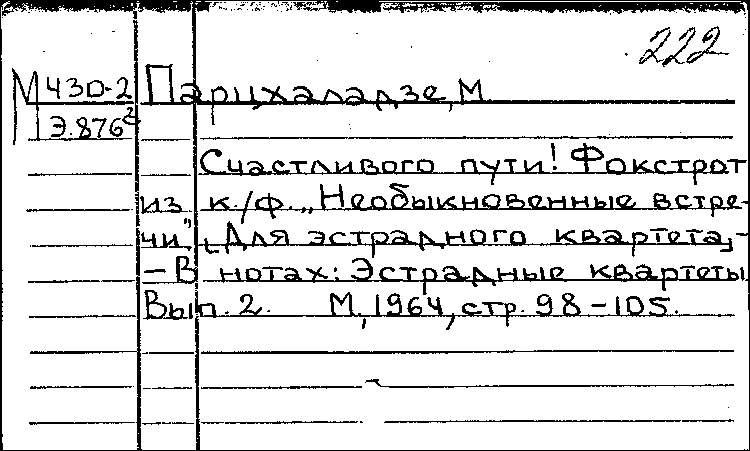 222
М430-2 Парцхаладзе, М
Э.876²
Счастливого пути! Фокстрот
из к./ф. „Необыкновенные встре-
чи". [Для эстрадного квартета] -
- В нотах: Эстрадные квартеты
Вып. 2. М, 1964, стр. 98-105.